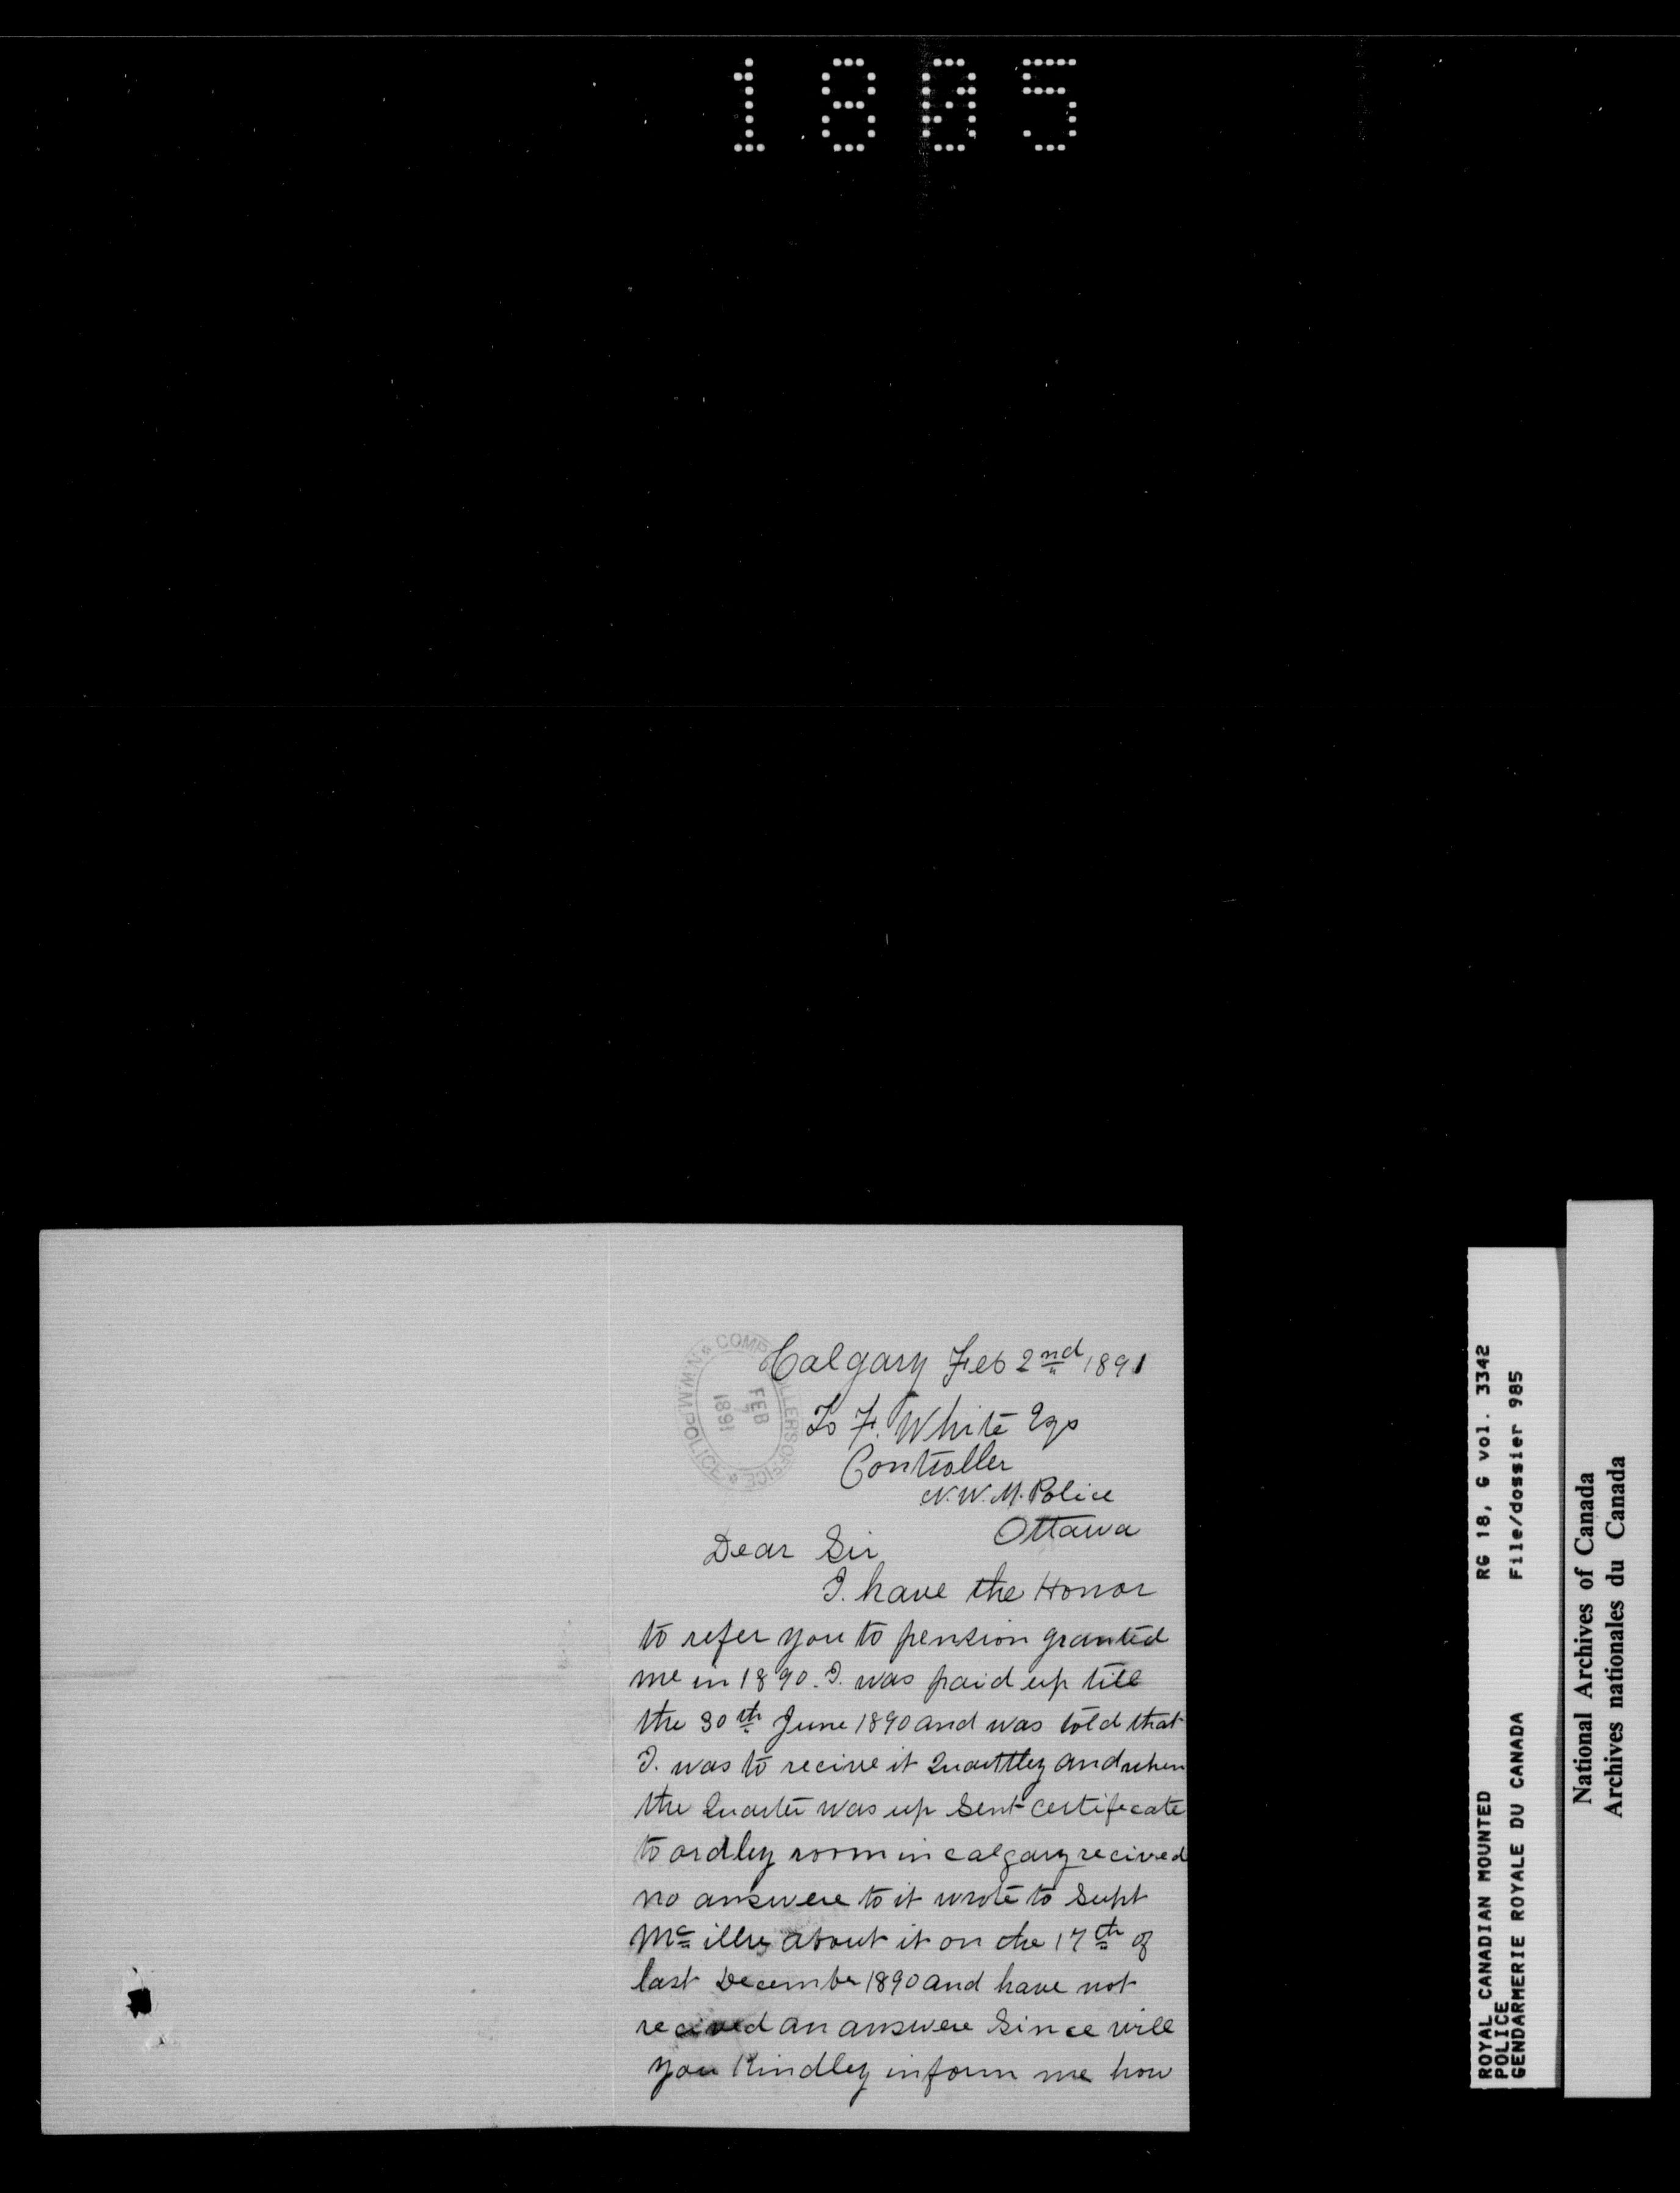 1805
COMPTROLLERS OFFICE
N.W.M. POLICE
FEB
7
1891
Calgary Feb 2nd 1891
To F. White Eqs
Controller
N.W.M. Police
Ottawa
Dear Sir
I. have the Honor
to refer you to pension granted
me in 1890. I. was paid up till
the 30th June 1890 and was told that
I. was to recive it Quarttley and when
the Quarter was up Sent certificate
to ordley room in calgary recived
no answere to it wrote to Supt
Mc illre about it on the 17th of
last December 1890 and have not
recived an answere Since will
you Kindley inform me how
ROYAL CANADIAN MOUNTED RG 18, G vol. 3342
POLICE
GENDARMERIE ROYALE DU CANADA File/dossier 985
National Archives of Canada
Archives nationales du Canada